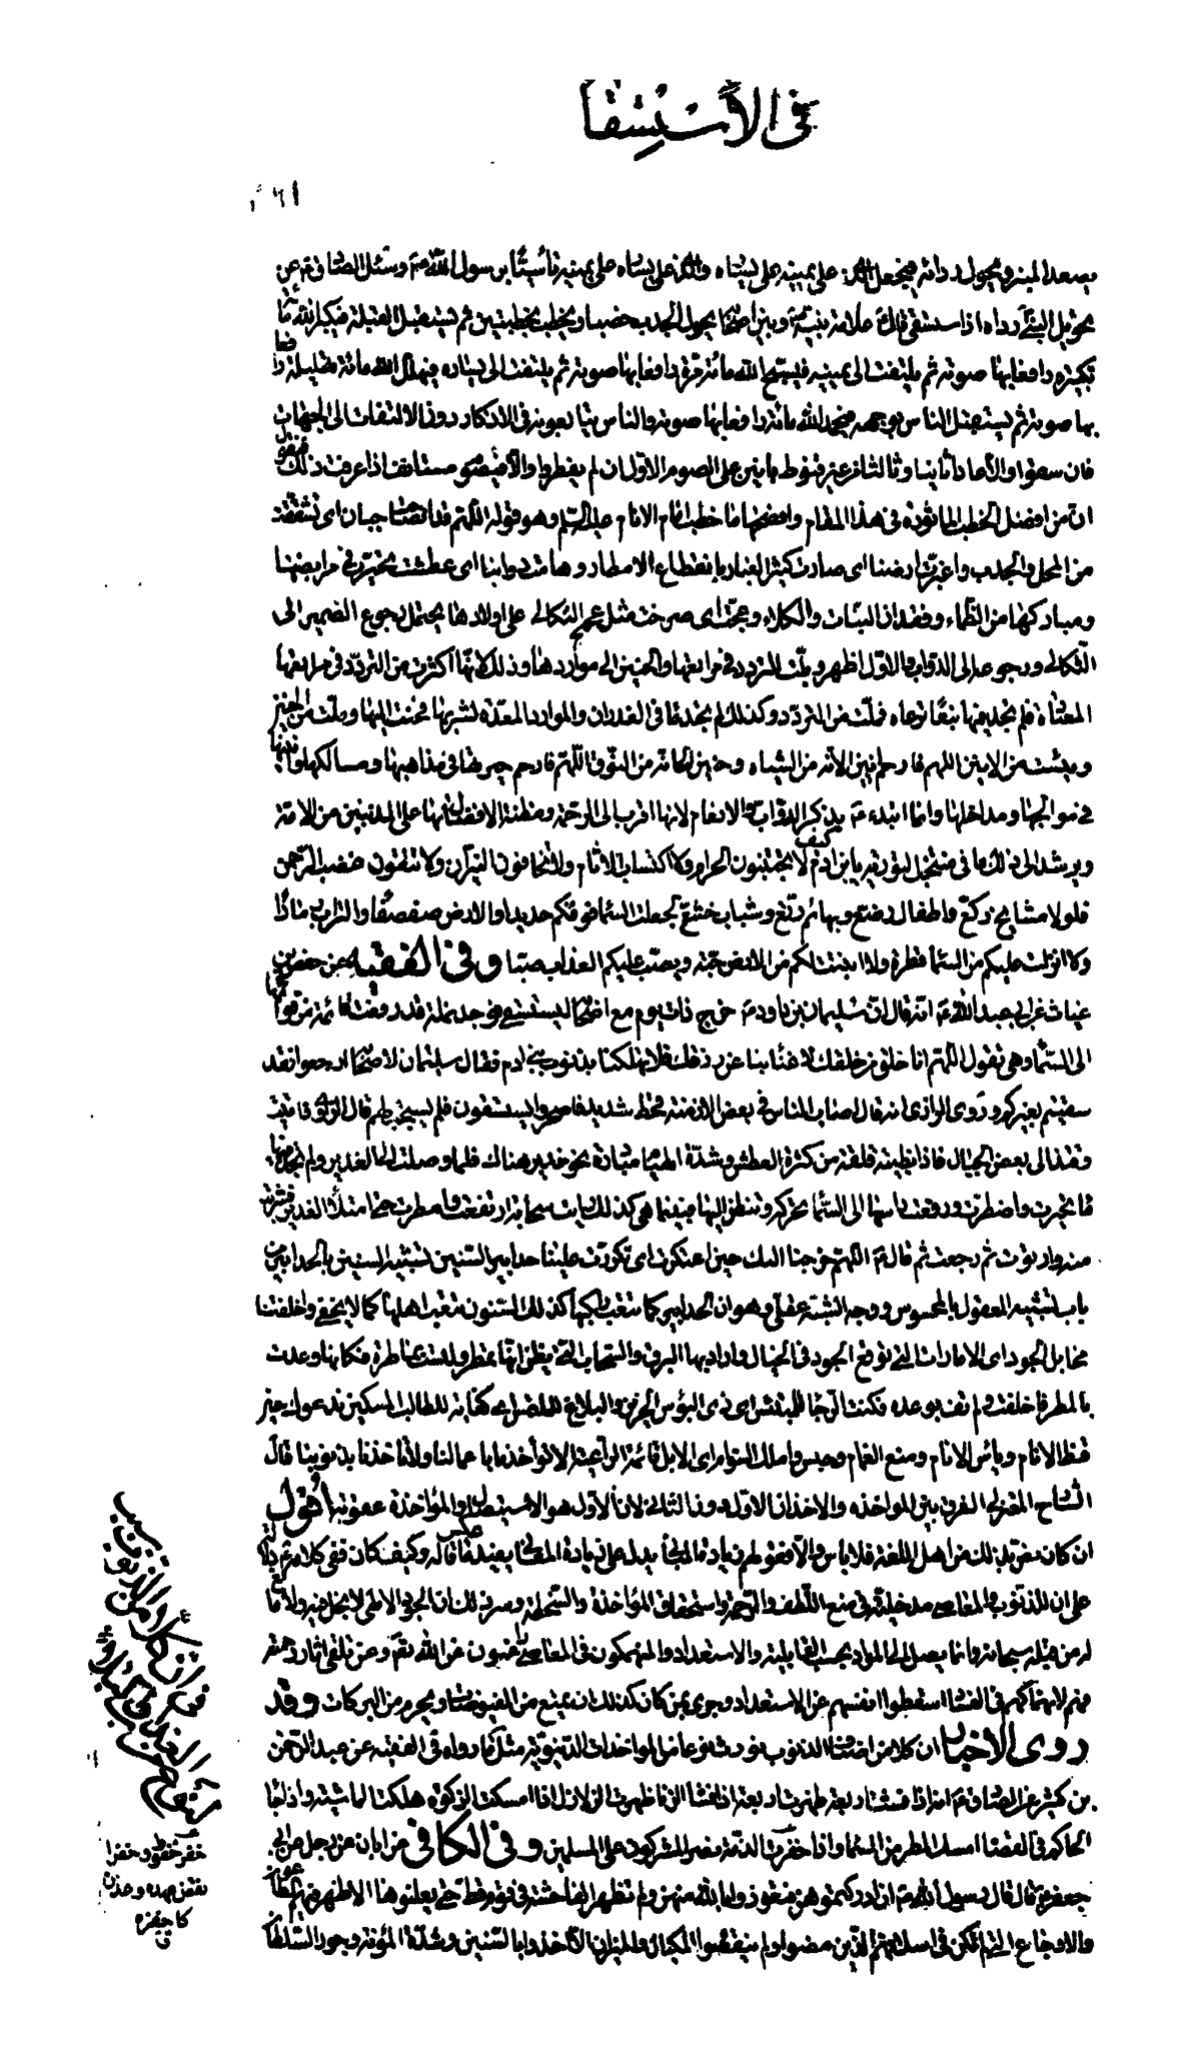 في الاستسقاء
٢٦١
يصعد المنبر ويحول رداءه فيجعل الذي على يمينه على يساره والذي على يساره على يمينه تأسيًا برسول الله ص وسئل الصادق ع عن
تحويل النبي رداءه اذا استسقى قال علامة بينه وبين اصحابه يحول الجدب خصبا ويخطب بخطبتين ثم يستقبل القبلة فيكبر الله مائة
تكبيرة رافعا بها صوته ثم يلتفت الى يمينه فيسبح الله مائة مرة رافعا بها صوته ثم يلتفت الى يساره فيهلل الله مائة تهليلة رافعا
بها صوته ثم يستقبل الناس بوجهه فيحمد الله مائة رافعا بها صوته والناس يتابعونه في الاذكار دون الالتفات الى الجهات
فان سقوا والا عادوا ثانيا وثالثا من غير قنوط بانين على الصوم الاول ان لم يفطروا والا فبصوم مستأنف اذا عرفت ذلك فنقول
ان من افضل الخطب المأثورة في هذا المقام وافصحها ما خطب امام الانام عليه السلم وهو قوله اللهم قد انصاحت جبالنا اي تشققت
من المحل والجدب واغبرت ارضنا اي صارت كثير الغبار بانقطاع الامطار وهامت دوابنا اي عطشت تحيرت في مرابضها
ومباركها من الظماء وفقدان النبات والكلاء وعجت اي صرخت مثل عجيج الثكالى على اولادها يحتمل رجوع الضمير الى
الثكالى ورجوعه الى الدواب والاول اظهر وملت التردد في مراتعها والحنين الى مواردها وذلك لانها اكثرت من التردد في مراتعها
المعتادة فلم تجد فيها نبتا ترعاه فملت من التردد وكذلك لم تجد ماء في الغدران والموارد المعدة لشربها فحنت اليها وملت من الحنين
ويئست من الانين اللهم فارحم انين الآنة من الشياه وحنين الحانة من النوق اللهم فارحم حيرتها في مذاهبها ومسالكها وانينها
في موالجها ومداخلها وانما ابتدء ع بذكر الدواب والانعام لانها اقرب الى الرحمة ومظنة الافضال بها على المذنبين من الامة
ويرشد الى ذلك ما في منتخل التورية يا بن ادم كيف لا تجتنبون الحرام ولا اكتساب الاثام ولا تخافون النيران ولا تتقون غضب الرحمن
فلولا مشايخ ركع واطفال رضع وبهائم رتع وشباب خشع لجعلت السماء فوقكم حديدا والارض صفصفا والتراب رمادا
ولا انزلت عليكم من السماء قطرة ولا انبتت لكم من الارض حبة ويصب عليكم العذاب صبا وفي الفقيه عن حفص بن
غياث عن ابي عبد الله ع انه قال ان سليمان بن داود ع خرج ذات يوم مع اصحابه ليستسقي فوجد نملة قد رفعت قائمة من قوائمها
الى السماء وهي تقول اللهم انا خلق من خلقك لا غناء بنا عن رزقك فلا تهلكنا بذنوب بني ادم فقال سليمان لاصحابه ارجعوا فقد
سقيتم بغيركم وروى الرازي انه قال اصاب الناس في بعض الازمنة قحط شديد فاصحروا يستسقون فلم يستجب لهم قال الراوي فاتيت
وقتا الى بعض الجبال فاذا بظبية قلقة من كثرة العطش وشدة الهيام مبادرة نحو غدير هناك فلما وصلت الى الغدير ولم تجد فيه ماء
تحيرت واضطربت ورفعت رأسها الى السماء تحركه وتنظر اليها فبينما هي كذلك رأيت سحابة ارتفعت وامطرت حتى امتلأ الغدير فشربت
منه وارتوت ثم رجعت ثم قال ع اللهم خرجنا اليك حين اعتكرت اي تكررت علينا حدابير السنين تشبيه السنين بالحدابير من
باب تشبيه المعقول بالمحسوس ووجه الشبه عقلي وهو ان الحدابير كما تتعب راكبها كذلك السنون تتعب اهلها كما لا يخفى واخلفتنا
مخايل الجود اي الامارات التي توقع الجود في الخيال واراد بها البرق والسحاب التي يظن انها تمطر وليست بماطرة فكانها وعدت
بالمطر فاخلفت ولم تف بوعده فكنت الرجاء للمبتئس اي ذي البؤس الحزين والبلاغ للملتمس اي كفاية للطالب المسكين ندعوك حين
قنط الانام ويأس الانام ومنع الغمام وحبس وهلك السوام اي الابل قائمة الراعية الا تؤاخذنا باعمالنا ولا تأخذنا بذنوبنا قال
الشارح المعتزلي الفرق بين المؤاخذة والاخذ ان الاول دون الثاني لان الاول هو الاستيصال والمؤاخذة عقوبة اقول
ان كان مقر بذلك من اهل اللغة فلا بأس والا فقولهم زيادة المباني يدل على زيادة المعاني يفيد عكس ما قاله وكيف كان ففي كلامه ع دلالة
على ان للذنوب والمعاصي مدخلية في منع اللطف والرحمة واستحقاق المؤاخذة والسخطة وسر ذلك ان الجود الالهي لا بخل فيه ولا مانع
له من قبله سبحانه وانما يصل الى المواد بحسب القابلية والاستعداد والمنهمكون في المعاصي معرضون عن الله تعالى وعن تلقي اثار رحمته
فهم لانهماكهم في الفساد اسقطوا انفسهم عن الاستعداد وحري بمن كان كذلك ان يمنع من الفيوضات ويحرم من البركات وقد
روى الاخبار ان كلا من اصناف الذنوب يورث نوعا من المؤاخذات الدنيوية مثل ما رواه في الفقيه عن عبد الرحمن
بن كثير عن الصادق ع انه اذا فشت اربعة ظهرت اربعة اذا فشا الزنا ظهرت الزلازل واذا امسكت الزكوة هلكت الماشية واذا جار
الحاكم في القضاء امسك المطر من السماء واذا خفرت الذمة نصر المشركون على المسلمين وفي الكافي عن ابان عن رجل عن ابي
جعفر ع قال قال رسول الله ص خمس ان ادركتموهن فتعوذوا بالله منهن لم تظهر الفاحشة في قوم قط حتى يعلنوها الا ظهر فيهم الطاعون
والاوجاع التي لم تكن في اسلافهم الذين مضوا ولم ينقصوا المكيال والميزان الا اخذوا بالسنين وشدة المؤنة وجور السلطان
خفره خفرا وخفرا
نقض عهده وغدره
كاخفره
ق